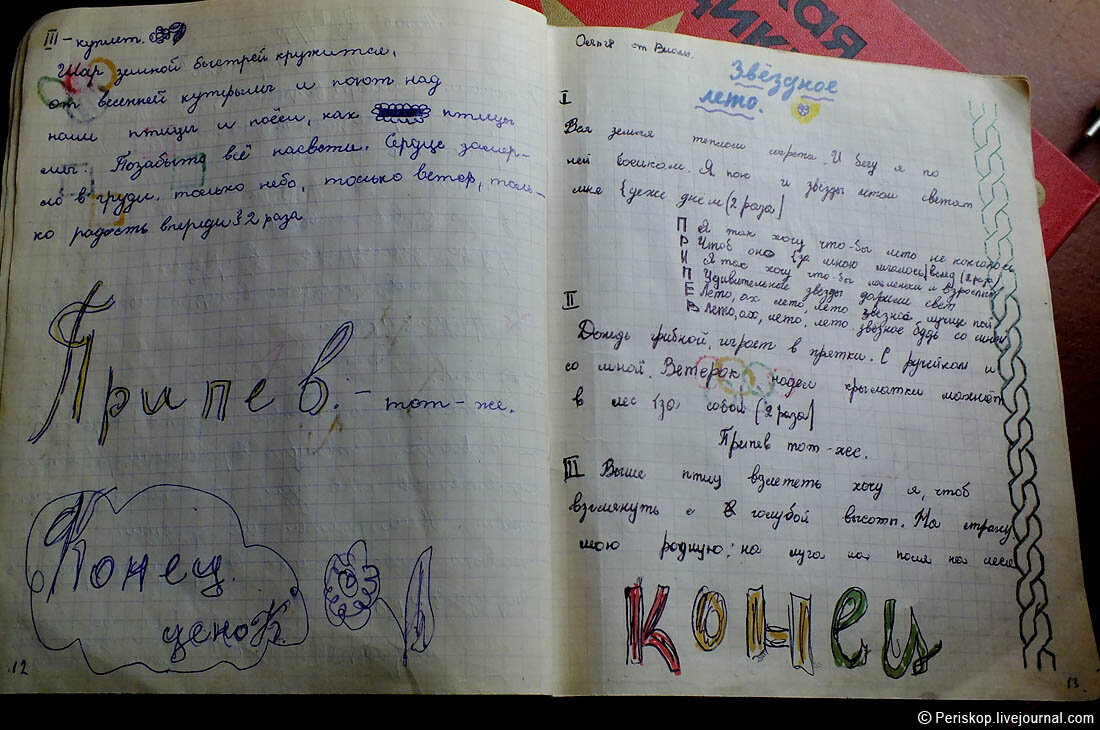 III - куплет.
Шар земной быстрей кружится,
от весенней кутерьмы и поют над
нами птицы и поём, как птицы
мы. Позабыто всё на свете. Сердце замер-
ло в груди. только небо, только ветер, толь-
ко радость впереди}2 раза
Припев. - тот-же.
Конец.
ценоК.
12
от
Звёздное
лето.
I
Вся земля теплом согрета. И бегу я по
ней босиком. Я пою и звёзды летом светят
мне {даже днём (2 раза)
ПРИПЕВ
Я так хочу что-бы лето не кончалось
Чтоб оно {за мною мчалось} вслед (2 раза)
Я так хочу что-бы маленьким и взрослым
Удивительные звезды дарили свет
Лето, ах лето, лето звездное, лучше пой
Лето, ах, лето, лето звезное будь со мной
II
Дождь грибной, играет в прятки. С ручейком и
со мной. Ветерок надел крылатки
в лес {за собой (2 раза)
Припев тот-же.
III Выше птиц взлететь хочу я, чтоб
взглянуть с голубой высоты. На страну
мою родную: на луга на поля на леса
конец
13
© Periskop.livejournal.com